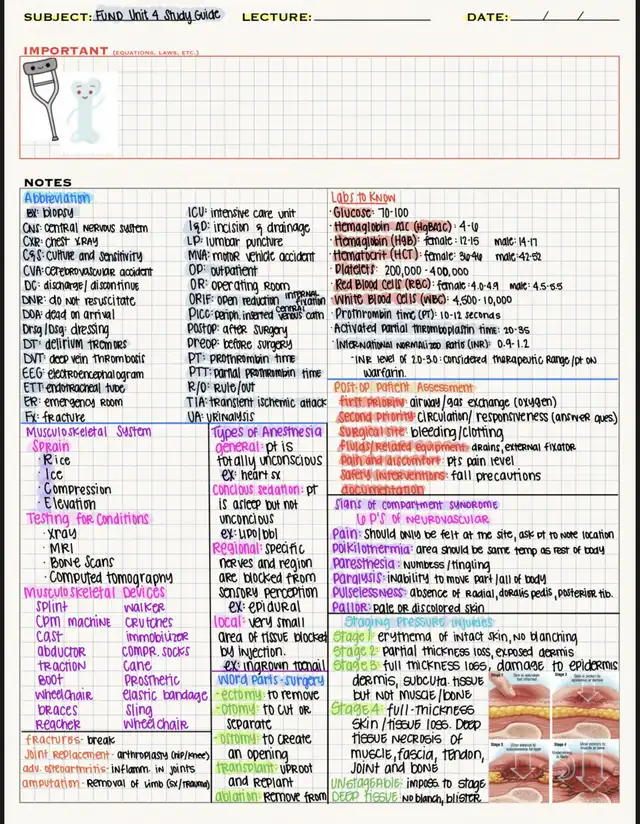 SUBJECT: FUND Unit 4 Study Guide LECTURE: DATE: / /
IMPORTANT (EQUATIONS, LAWS, ETC.)
NOTES
Abbreviation
BX: biopsy
CNS: central nervous system
CXR: chest xray
C&S: culture and sensitivity
CVA: cerebrovascular accident
DC: discharge/discontinue
DNR: do not resuscitate
DOA: dead on arrival
Drsg/Dsg: dressing
DT: delirium tremors
DVT: deep vein thrombosis
EEG: electroencephalogram
ETT: endotracheal tube
ER: emergency room
Fx: fracture
ICU: intensive care unit
I&D: incision & drainage
LP: lumbar puncture
MVA: motor vehicle accident
OP: outpatient
OR: operating room
ORIF: open reduction internal fixation
PICC: periph. inserted central venous cath
Postop: after surgery
Preop: before surgery
PT: prothrombin time
PTT: partial prothrombin time
R/O: rule/out
TIA: transient ischemic attack
UA: urinalysis
Labs to Know
· Glucose: 70-100
· Hemaglobin A1C (HgBA1C): 4-6
· Hemaglobin (HgB): female: 12-15 male: 14-17
· Hematocrit (HCT): female: 36-46 male: 42-52
· Platelets: 200,000-400,000
· Red Blood Cells (RBC): female: 4.0-4.9 male: 4.5-5.5
· White Blood Cells (WBC): 4,500-10,000
· Prothrombin time (PT): 10-12 seconds
· Activated partial thromboplastin time: 20-35
· International normalized Ratio (INR): 0.9-1.2
· INR level of 2.0-3.0: considered therapeutic range/pt on
warfarin.
Post-op Patient Assessment
First priority: airway/gas exchange (oxygen)
Second priority: circulation/responsiveness (answer ques)
Surgical site: bleeding/clotting
Fluids/Related equipment: drains, external fixator
Pain and discomfort: pts pain level
Safety interventions: fall precautions
documentation
Musculoskeletal System
Sprain
· Rice
· Ice
· Compression
· Elevation
Testing for Conditions
· Xray
· MRI
· Bone Scans
· Computed tomography
Musculoskeletal Devices
splint
CPM machine
cast
abductor
traction
Boot
wheelchair
braces
Reacher
walker
crutches
immobilizer
compr. socks
cane
Prosthetic
elastic bandage
sling
wheelchair
fractures- break
Joint Replacement- arthroplasty (hip/knee)
adv. osteoarthritis- inflamm. in joints
amputation- Removal of limb (sx/trauma)
Types of Anesthesia
general: pt is
totally unconscious
ex: heart sx
Concious sedation: pt
is asleep but not
unconcious
ex: lipo/bbl
Regional: specific
nerves and region
are blocked from
sensory perception
ex: epidural
local: very small
area of tissue blocked
by injection.
ex: ingrown toenail
Word Parts-surgery
-ectomy: to remove
-otomy: to cut or
separate
-ostomy: to create
an opening
transplant: uproot
and replant
ablation: remove from
Signs of compartment syndrome
6 P'S of Neurovascular
Pain: should only be felt at the site, ask pt to note location
Poikilothermia: area should be same temp as rest of body
Paresthesia: numbess/tingling
Paralysis: inability to move part/all of body
Pulselessness: absence of Radial, doralis pedis, posterior tib.
Pallor: pale or discolored skin
Staging Pressure Injuries
Stage 1: erythema of intact skin, no blanching
Stage 2: partial thickness loss, exposed dermis
Stage 3: full thickness loss, damage to epidermis
dermis, subcuta. tissue
but not muscle/bone
Stage 4: full-thickness
skin/tissue loss. Deep
tissue necrosis of
muscle, fascia, tendon,
joint and bone
Unstageable: imposs to stage
DEEP TISSUE: no blanch, blister
Stage 1
Stage 2
Stage 3
Stage 4